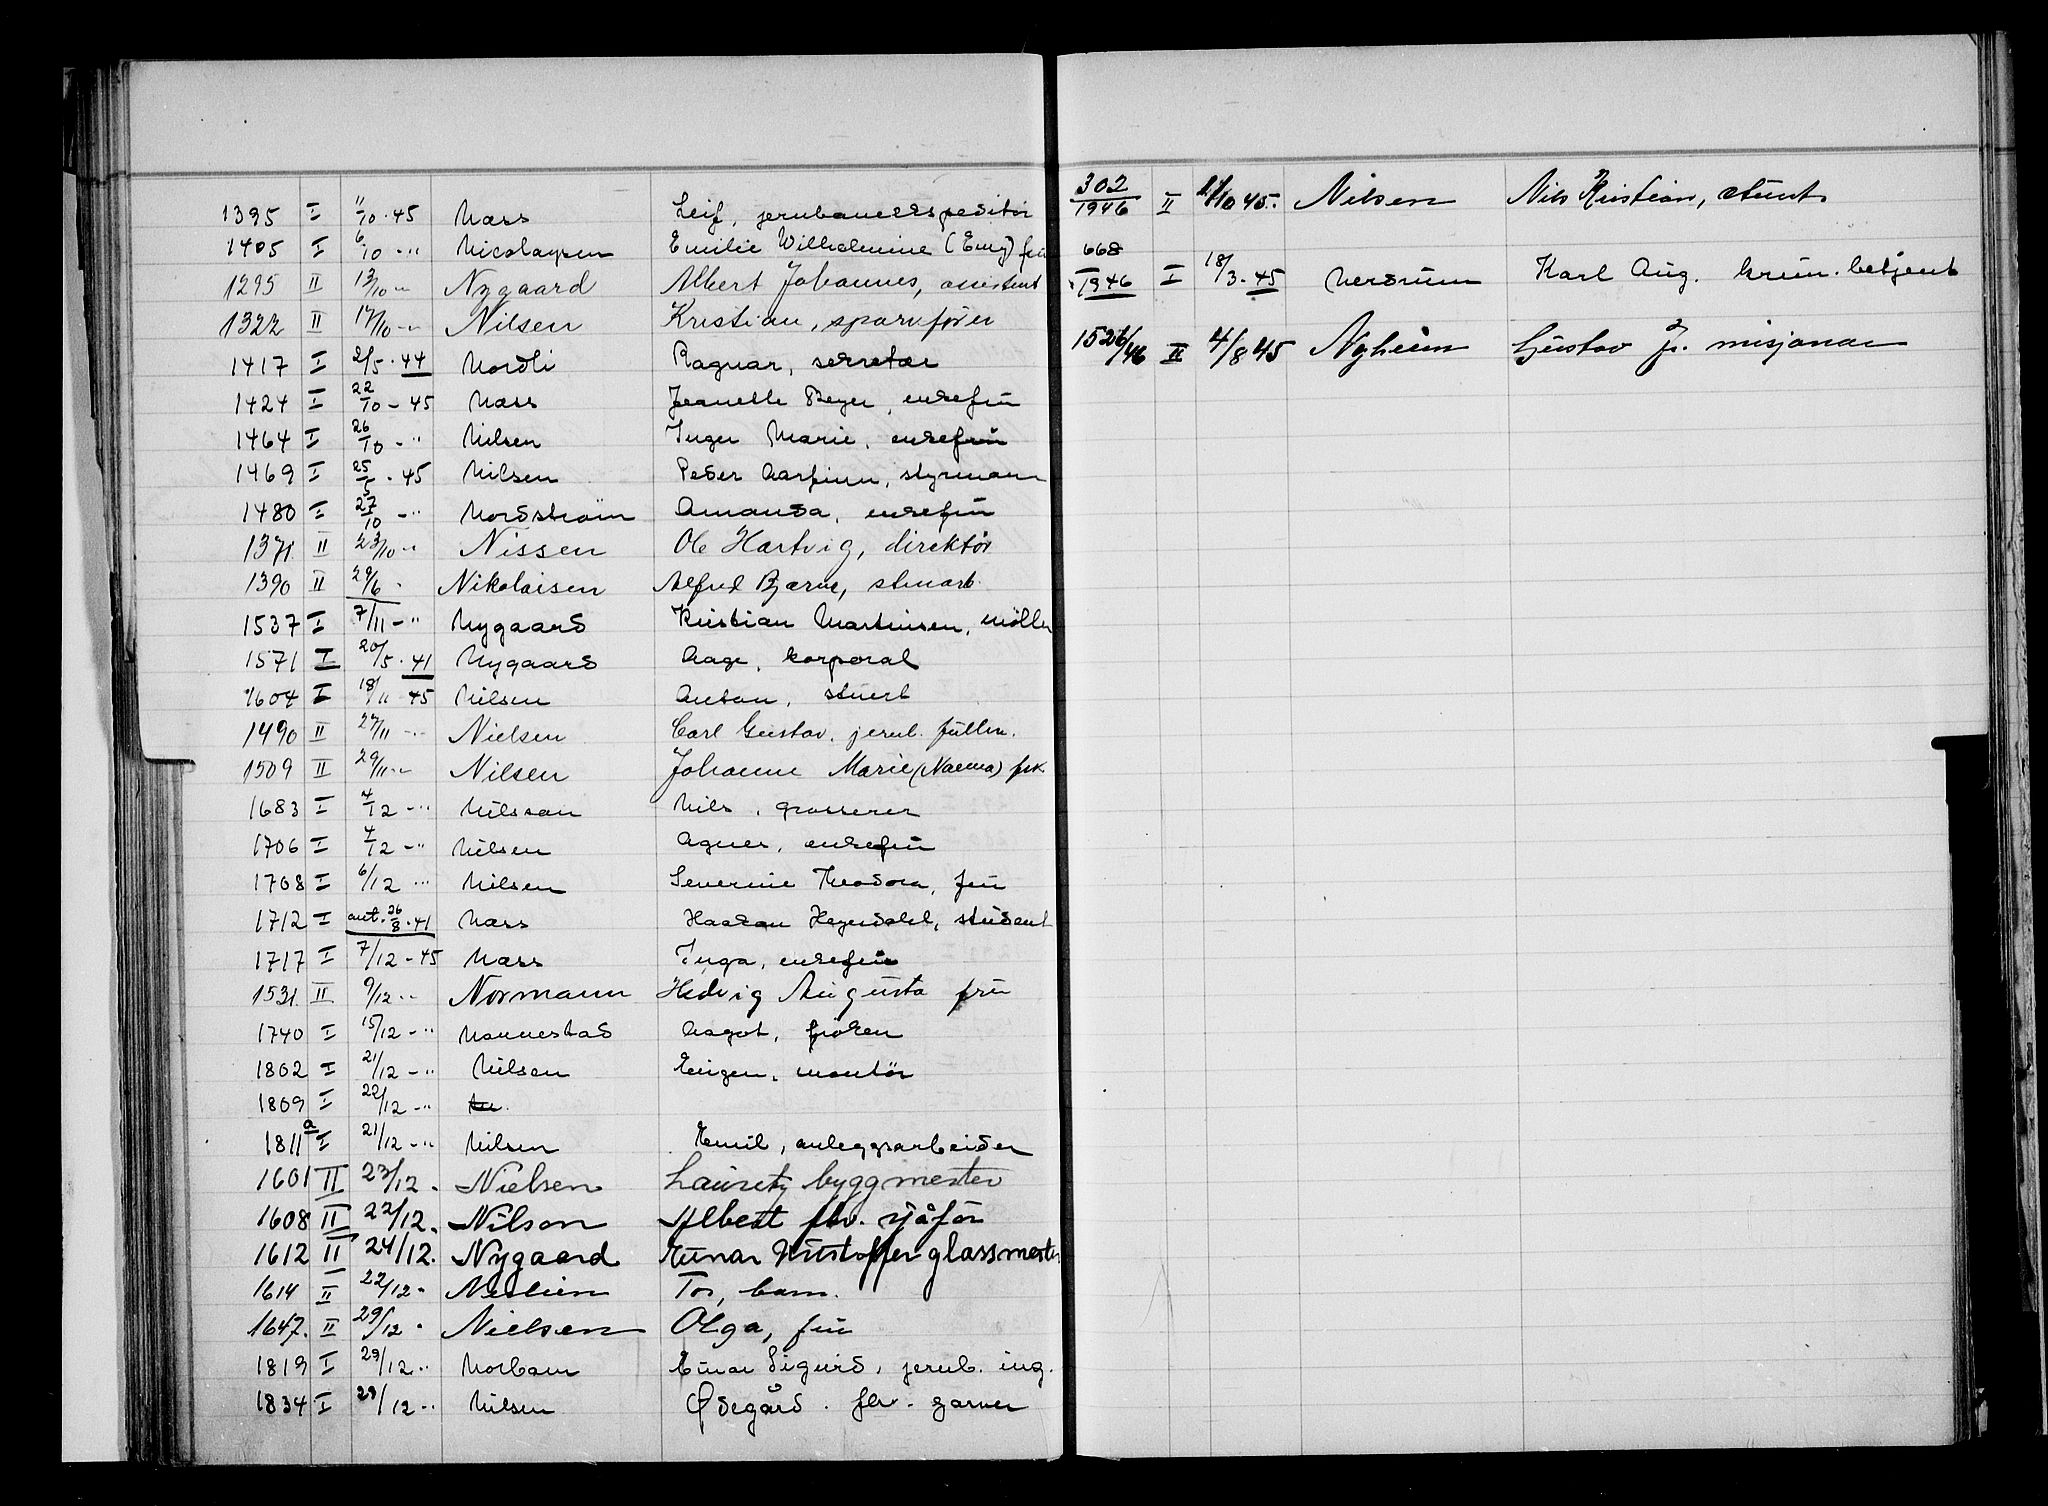 1395 I 11/10 · 45 Næss Leif, jernbaneekspeditør
1405 I 6/10 - " Nicolaysen Emilie Wilhelmine (Emy) fru
1295 II 13/10 - " Nygaard Albert Johannes, assistent
1322 II 17/10 - " Nilsen Kristian, sporvfører
1417 I 2/5 · 44 Nordli Ragnar, sekretær
1424 I 22/10 - 45 Næss Jeanette Beyer, enkefru
1464 I 26/10 - " Nilsen Inger Marie, enkefru
1469 I 25/5 · 45 Nilsen Peder Aarfinn, styrmann
1480 I 27/10 - " Nordstrøm Amanda, enkefru
1371 II 23/10 - " Nissen Ole Hartvig, direktør
1390 II 29/6 · Nikolaisen Alfred Bjarne, stuart
1537 I 7/11 - " Nygaard Kristian Martinsen, møller
1571 I 20/5 · 41 Nygaard Aage, korporal
1604 I 18/11 45 Nilsen Anton, stuert
1490 II 27/11 - " Nielsen Carl Gustav, jernb. fullm.
1509 II 29/11 - " Nilsen Johanne Marie (Naema) frk.
1683 I 4/12 - " Nilsson Nils, grosserer
1706 I 4/12 - " Nilsen Agnes, enkefru
1708 I 6/12 - " Nilsen Severine Theodora, fru
1712 I ant. 26/8 · 41 Næss Haakon Heyerdahl, student
1717 I 7/12 - 45 Næss Inga, enkefru
1531 II 9/12 - " Normann Hedvig Augusta fru
1740 I 15/12 - " Nannestad Aagot, frøken
1802 I 21/12 - " Nilsen Eugen, montør
1809 I 22/12 - "
1811a I 21/12 - " Nilsen Emil, anleggsarbeider
1601 II 23/12 · Nielsen Lauretz byggmester
1608 II 22/12. Nilson Albert fhv. sjåfør
1612 II 24/12. Nygaard Gunar Kristoffer glassmester
1614 II 22/12 · Neslien Tor, barn.
1647. II 29/12 · Nielsen Olga, fru
1819 I 29/12 - " Norbom Einar Sigurd, jernb. ing.
1834 I 29/12 - " Nilsen Ødegård. fhv. garver
302/1946 II 21/10 45. Nilsen Nils Kristian, stuert
668/1946 I 18/3 · 45 Nerdrum Karl Aug. krim. betjent
1526/46 II 4/8 45 Nyheim Gustav Jr. misjonær